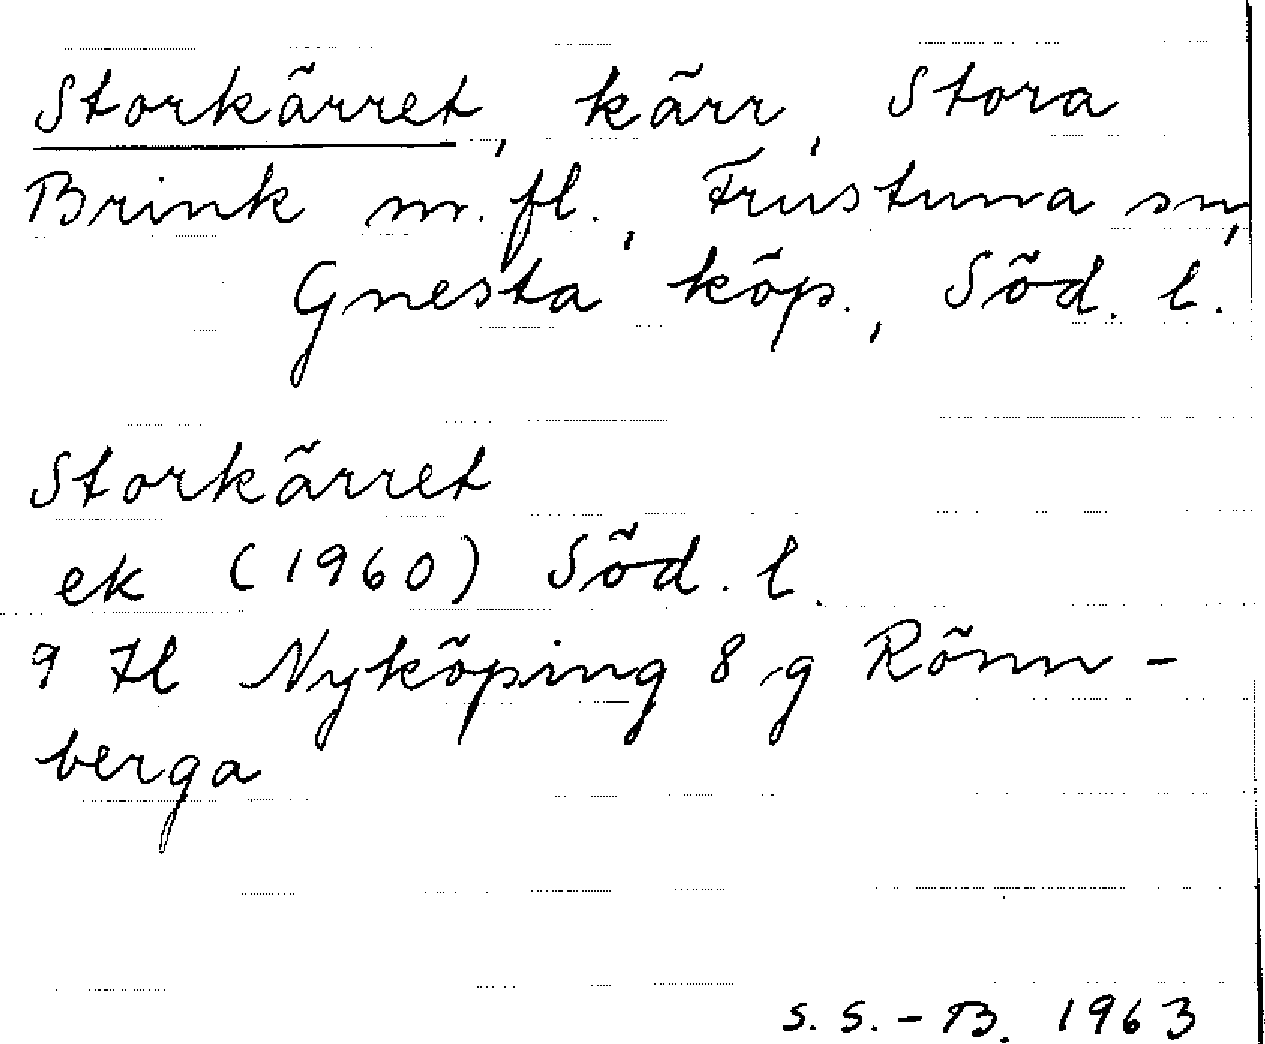 Storkärret, kärr, Stora
Brink m. fl., Frustuna sn,
Gnesta köp., Söd. l.
Storkärret
ek (1960) Söd. l.
9 Hl Nyköping 8 g Rönn-
berga
S. S.-B. 1963